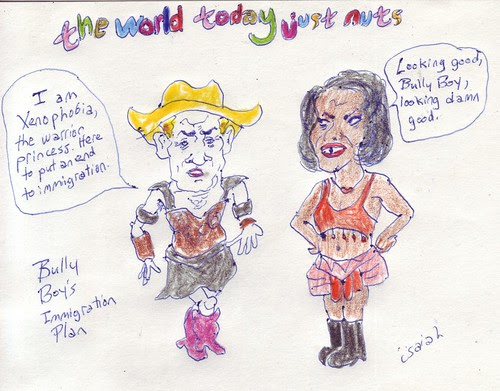 the world today just nuts
I am
Xenophobia,
the warrior
princess. Here
to put an end
to immigration.
Looking good,
Bully Boy,
looking damn
good.
Bully
Boy's
Immigration
Plan
isaiah